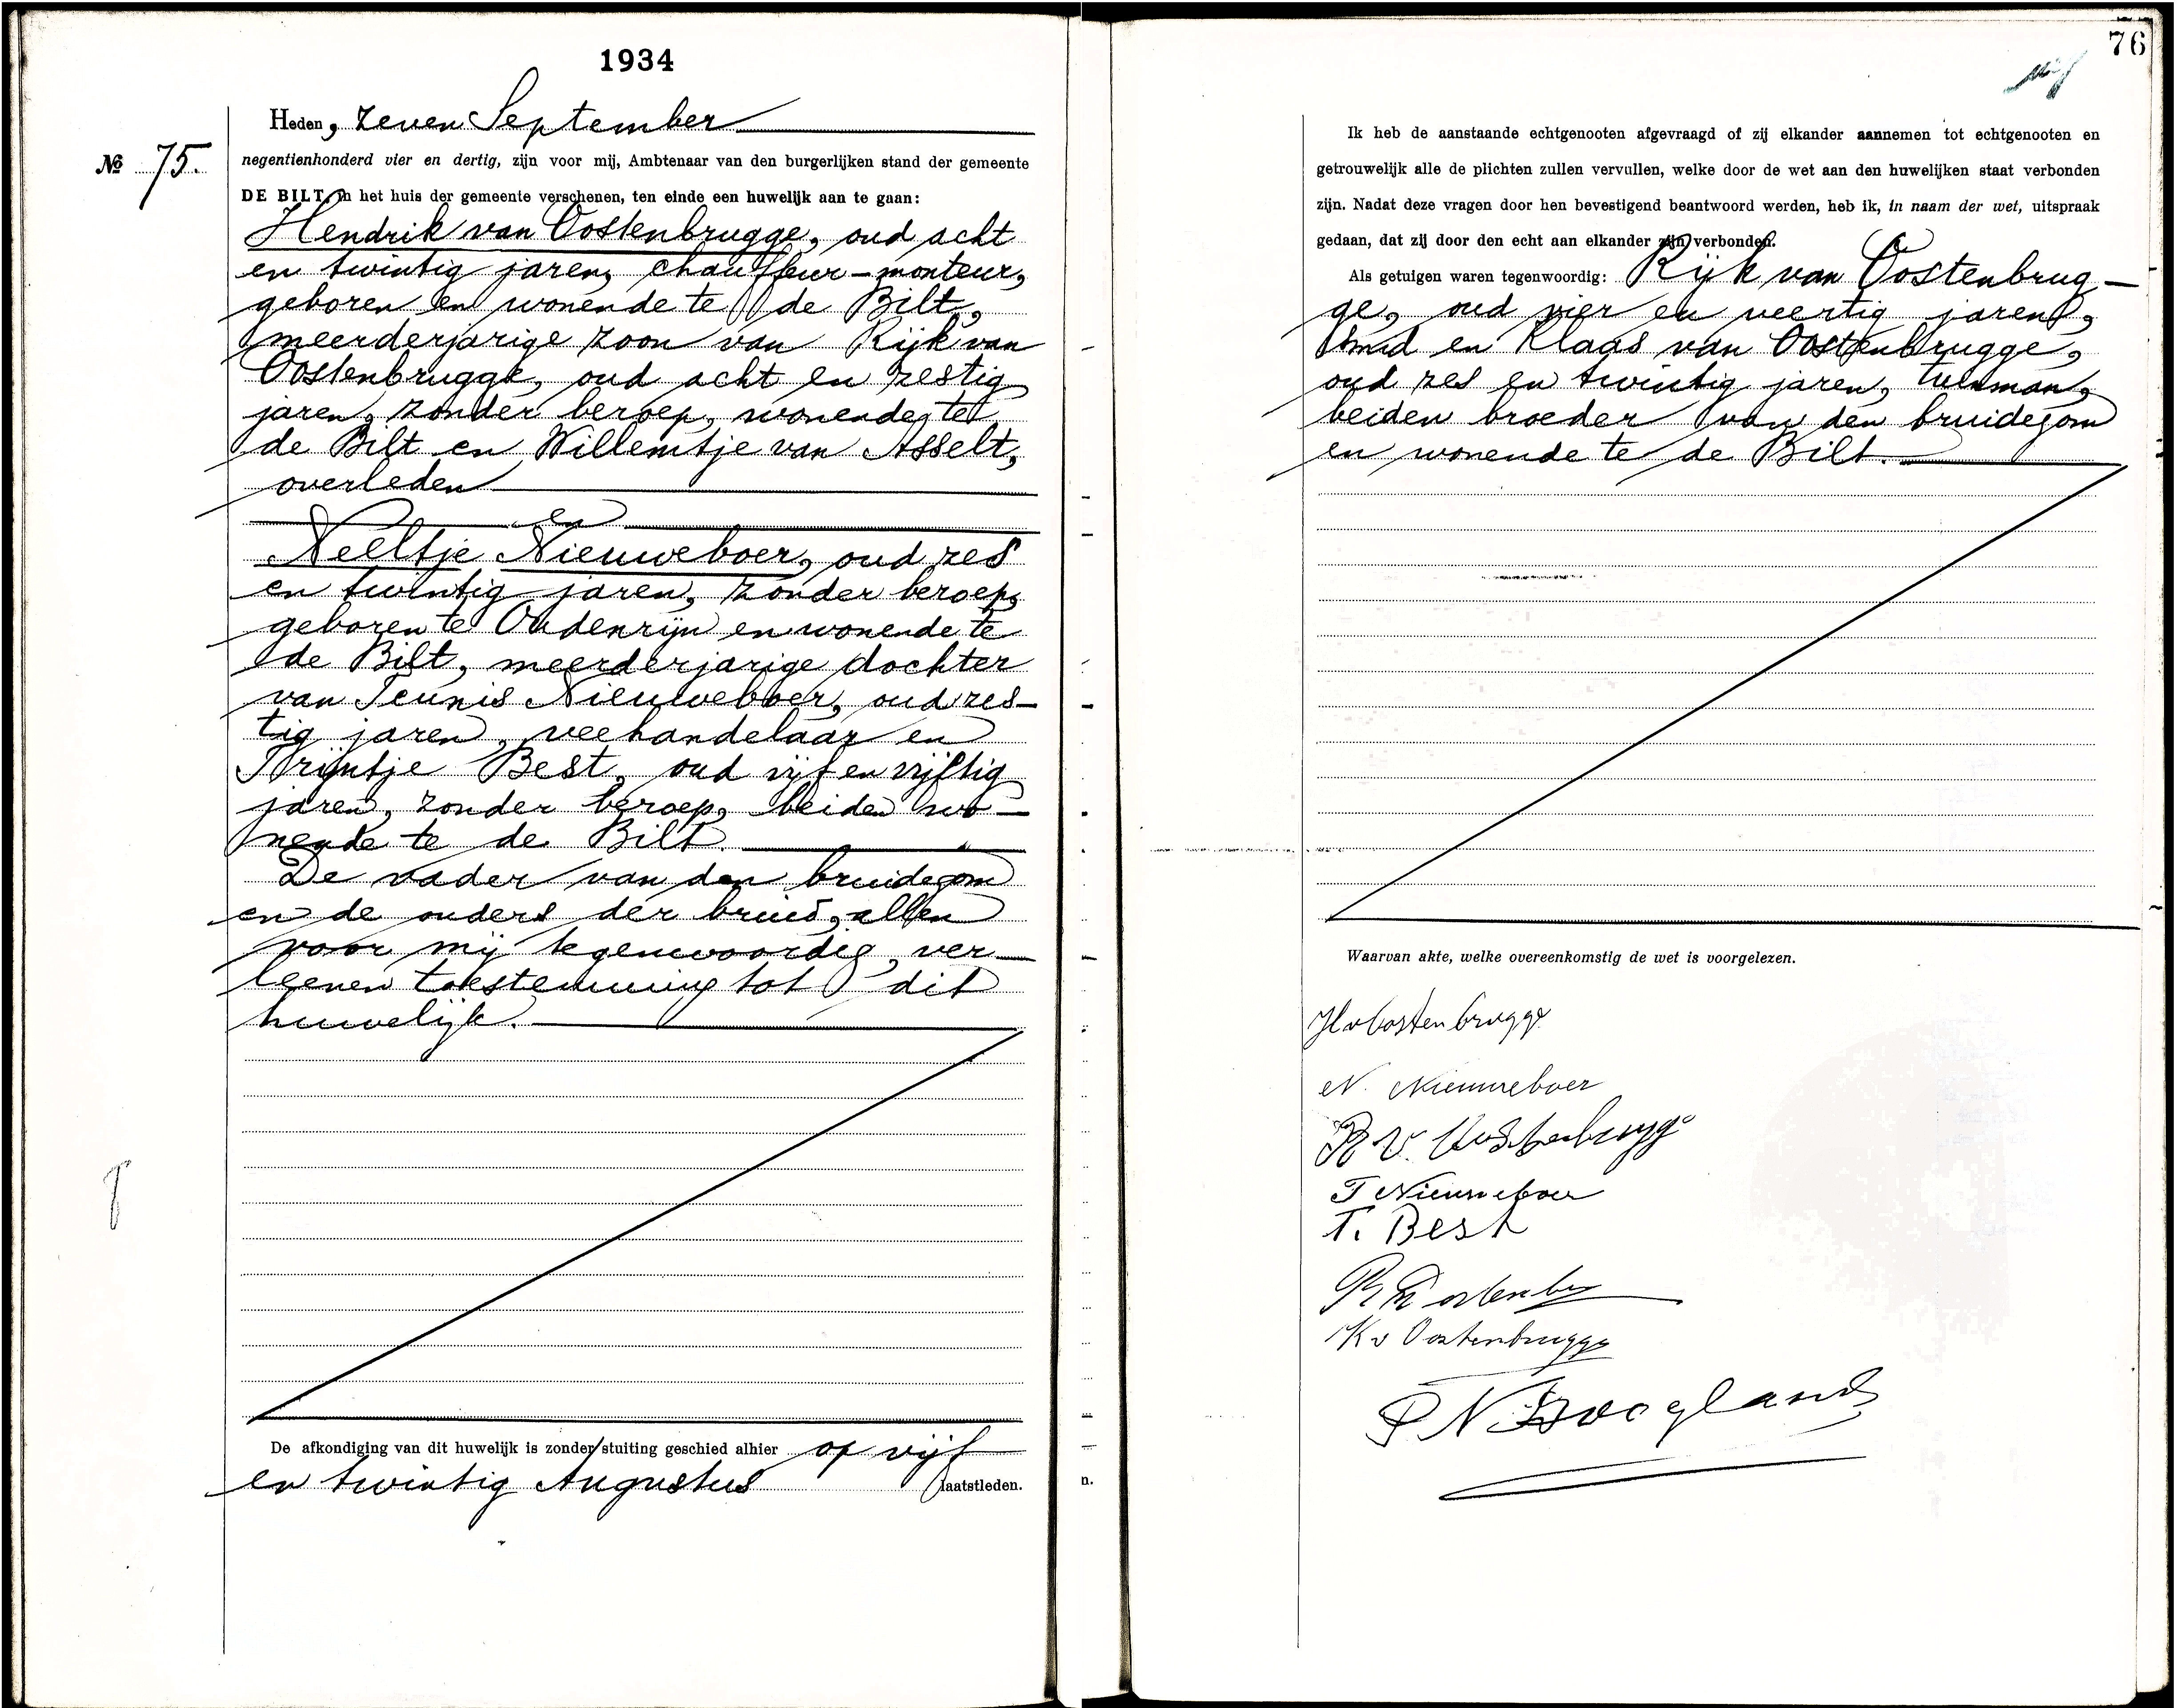 1934
Heden, zeven September
№ 75.
negentienhonderd vier en dertig, zijn voor mij, Ambtenaar van den burgerlijken stand der gemeente
DE BILT, in het huis der gemeente verschenen, ten einde een huwelijk aan te gaan:
Hendrik van Oostenbrugge, oud acht
en twintig jaren, chauffeur-monteur,
geboren en wonende te de Bilt,
meerderjarige zoon van Rijk van
Oostenbrugge, oud acht en zestig
jaren, zonder beroep, wonende te
de Bilt en Willemtje van Asselt,
overleden
en
Neeltje Nieuweboer, oud zes
en twintig jaren, zonder beroep,
geboren te Oudenrijn en wonende te
de Bilt, meerderjarige dochter
van Teunis Nieuweboer, oud zes-
tig jaren, veehandelaar en
Trijntje Best, oud vijf en vijftig
jaren, zonder beroep, beiden wo-
nende te de Bilt.
De vader van den bruidegom
en de ouders der bruid, allen
voor mij tegenwoordig, ver-
leenen toestemming tot dit
huwelijk.
De afkondiging van dit huwelijk is zonder stuiting geschied alhier op vijf
en twintig Augustus laatstleden.
76
Ik heb de aanstaande echtgenooten afgevraagd of zij elkander aannemen tot echtgenooten en
getrouwelijk alle de plichten zullen vervullen, welke door de wet aan den huwelijken staat verbonden
zijn. Nadat deze vragen door hen bevestigend beantwoord werden, heb ik, in naam der wet, uitspraak
gedaan, dat zij door den echt aan elkander zijn verbonden.
Als getuigen waren tegenwoordig: Rijk van Oostenbrug-
ge, oud vier en veertig jaren,
smid en Klaas van Oostenbrugge,
oud zes en twintig jaren, tuinman,
beiden broeder van den bruidegom
en wonende te de Bilt.
Waarvan akte, welke overeenkomstig de wet is voorgelezen.
H v Oostenbrugge
N. Nieuweboer
R v. Oostenbrugge
T Nieuweboer
T. Best
K v Oostenbrugge
P N Hoogland
n.